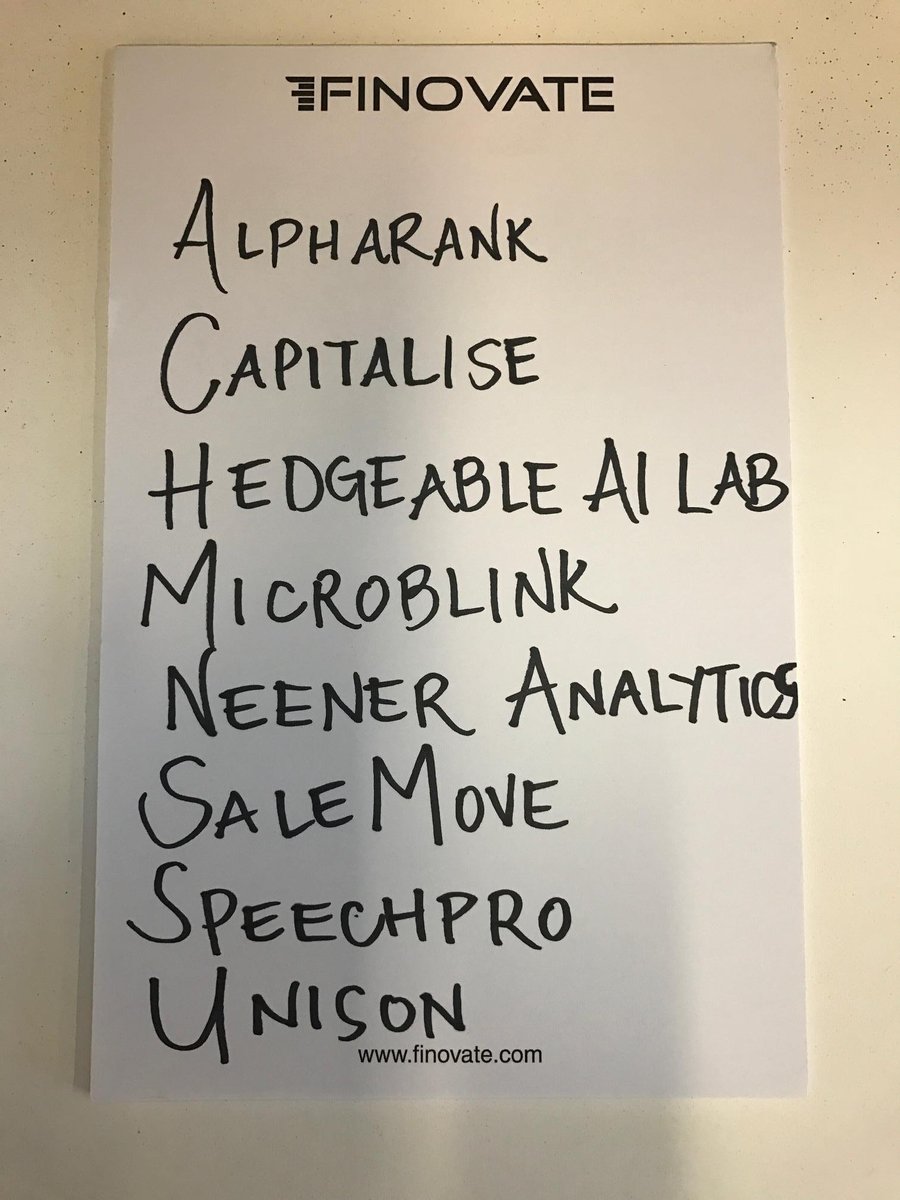 FINOVATE
ALPHARANK
CAPITALISE
HEDGEABLE AI LAB
MICROBLINK
NEENER ANALYTICS
SALEMOVE
SPEECHPRO
UNISON
www.finovate.com